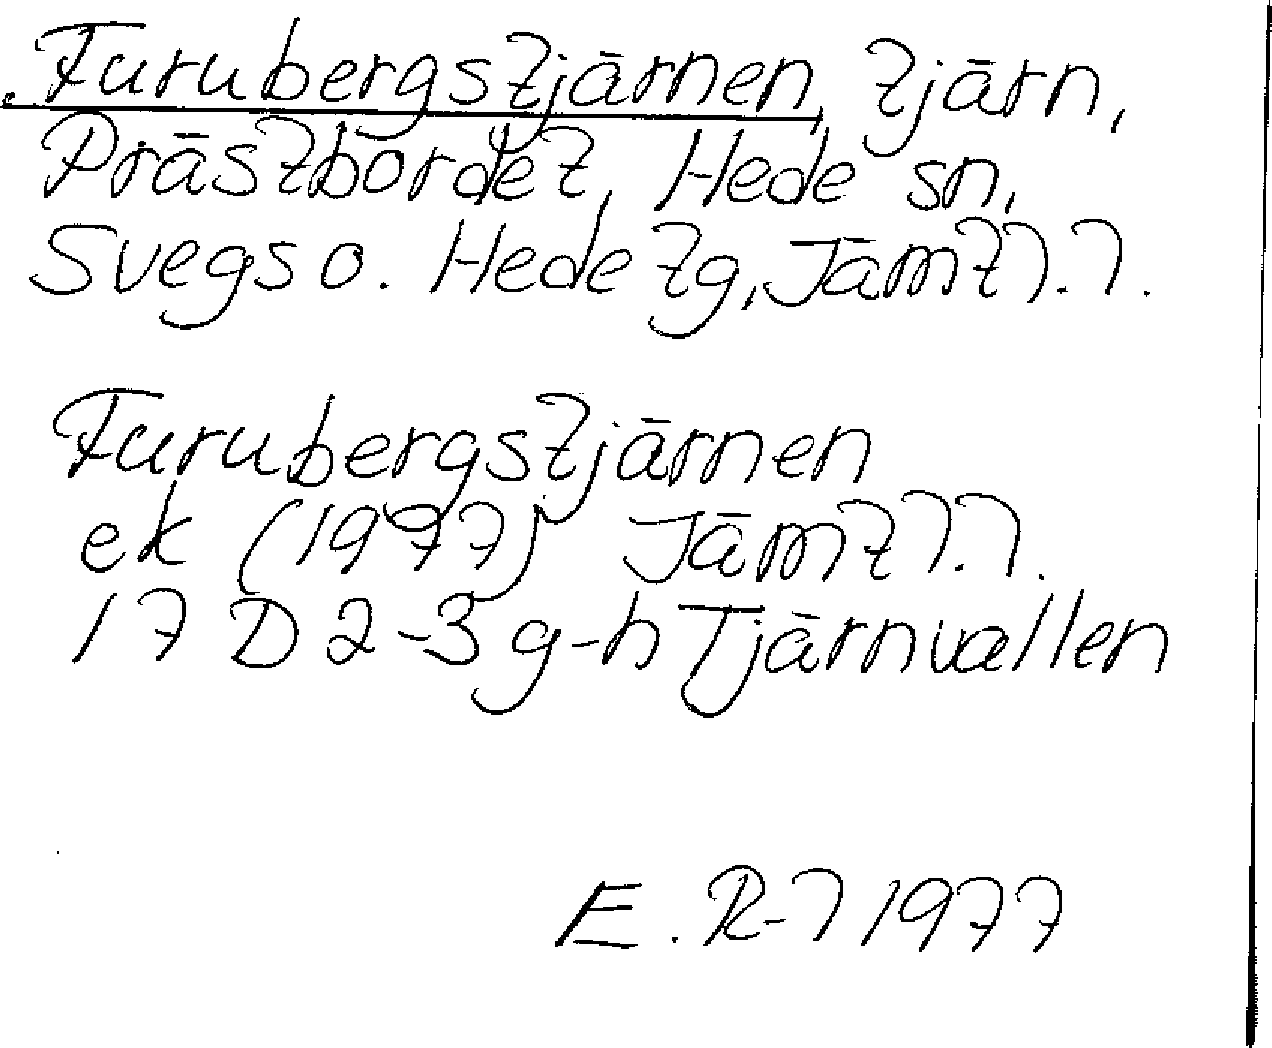 Furubergstjärnen, tjärn,
Prästbordet, Hede sn,
Svegs o. Hede tg, Jämtl. l.
Furubergstjärnen
ek (1977) Jämtl. l.
17 D 2-3 g-h Tjärnvallen
E. R-l 1977